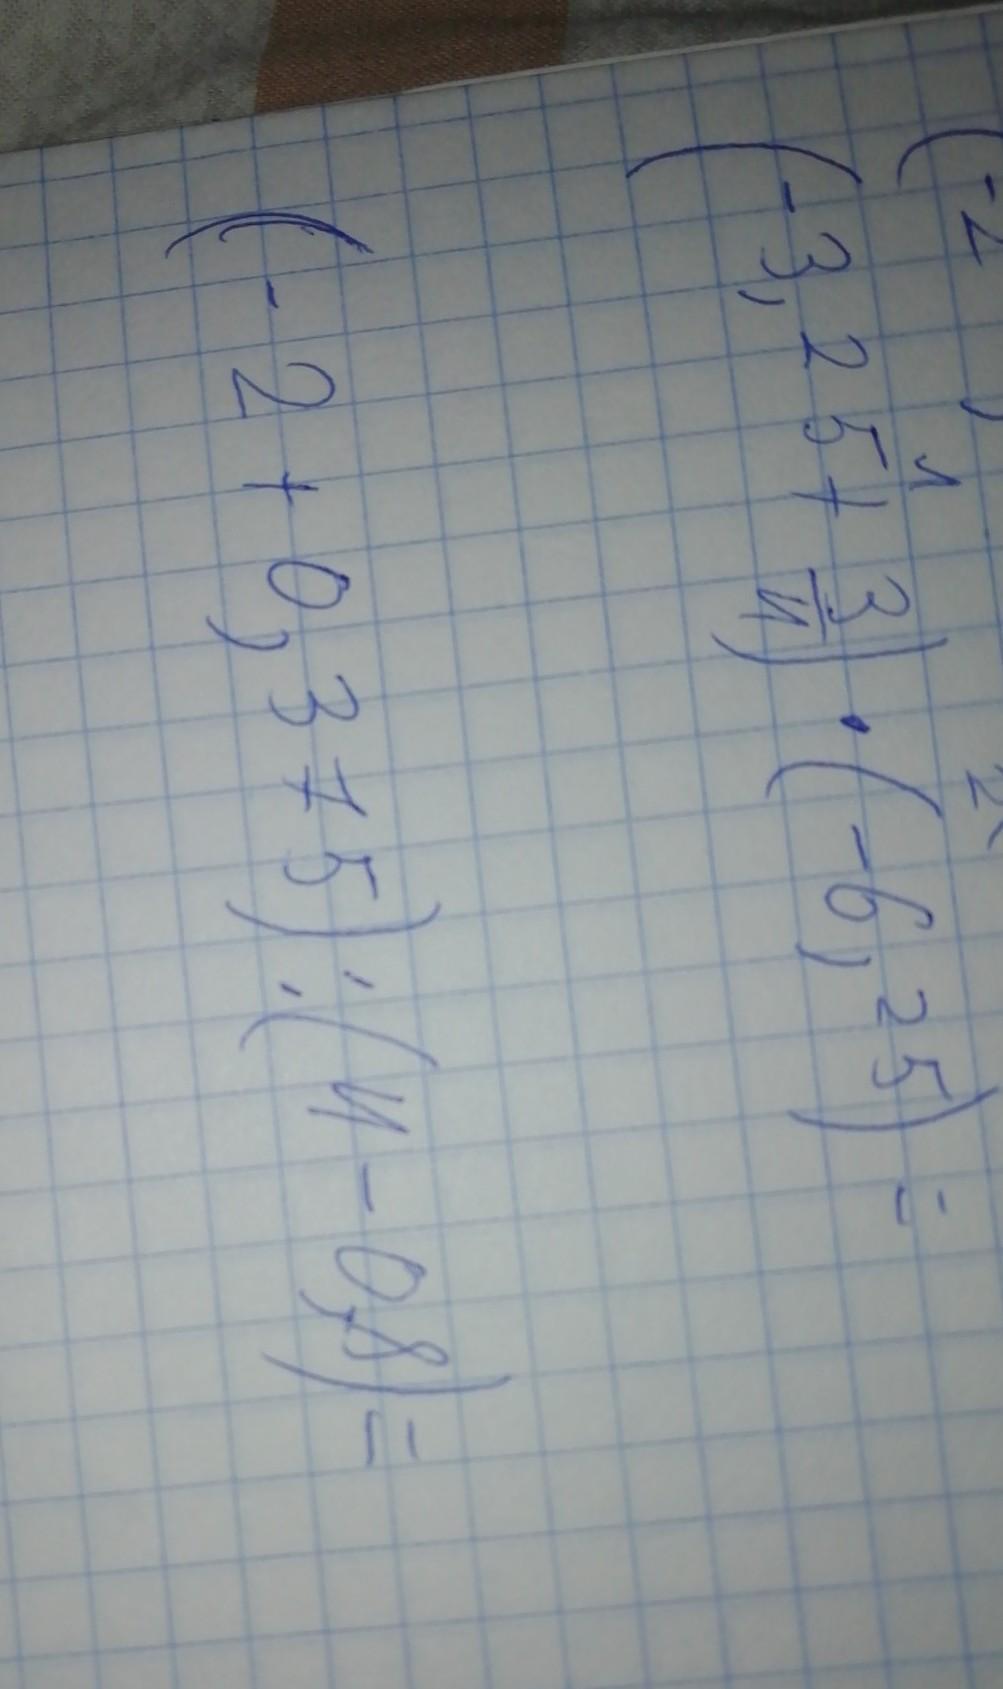 (-2
(-3,25+\frac{3}{4})·(-6,25)=
(-2+0,375):(4-0,8)=